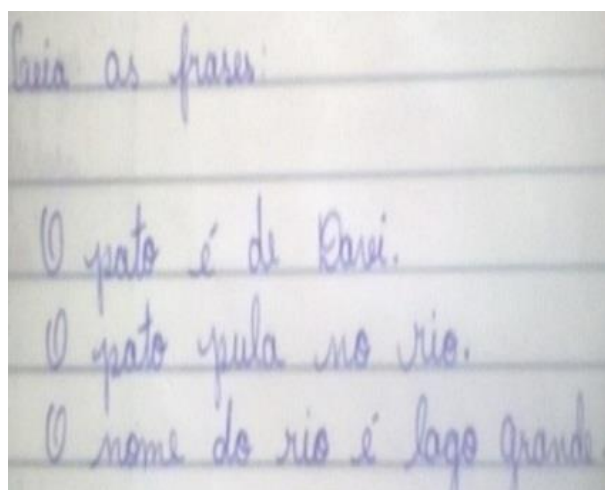 Leia as frases:
O pato é de Davi.
O pato pula no rio.
O nome do rio é lago grande.